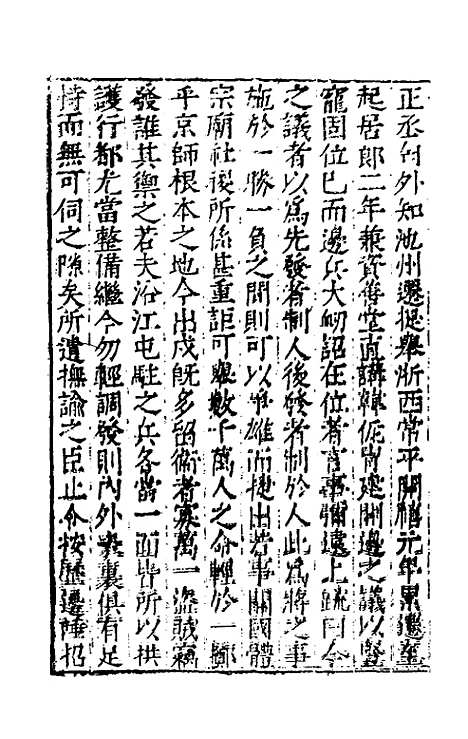 正丞匄外知池州遷提舉浙西常平開禧元年累遷至
起居郎二年兼資善堂直講韓侂胄建開邊之議以堅
寵固位已而邊兵大衂詔在位者言事彌遠上疏曰今
之議者以爲先發者制人後發者制於人此爲將之事
施於一勝一負之間則可以爭雄而捷出若事關國體
宗廟社稷所係甚重詎可舉數千萬人之命輕於一擲
乎京師根本之地今出戍旣多留衞者寡萬一盜賊竊
發誰其禦之若夫沿江屯駐之兵各當一面皆所以拱
護行都尤當整備繼今勿輕調發則內外表裏俱有足
恃而無可伺之隙矣所遣撫諭之臣止令按歷邊陲招